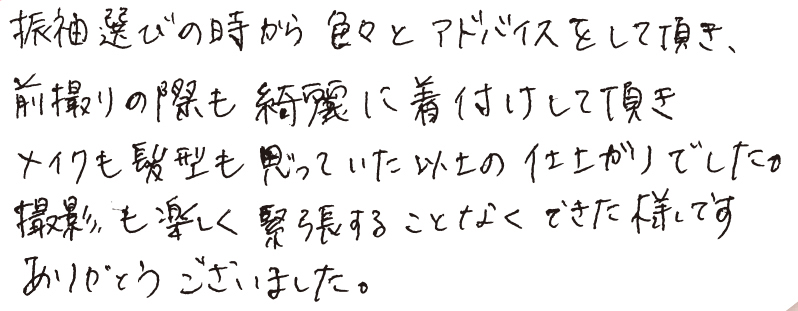 振袖選びの時から色々とアドバイスをして頂き、
前撮りの際も綺麗に着付けして頂き
メイクも髪型も思っていた以上の仕上がりでした。
撮影も楽しく緊張することなくできた様です
ありがとうございました。